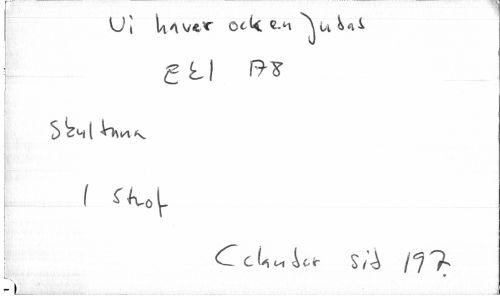 Vi haver ock en Judas
EEl 178
Skultuna
1 Strof
Celander sid 197.